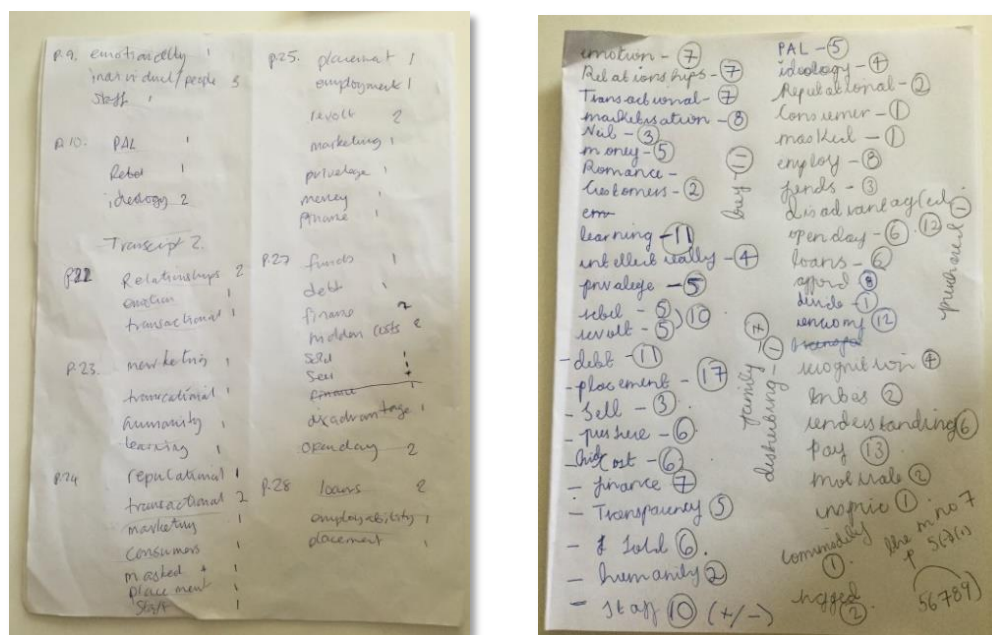 P.9. emotionally 1
individual/people 3
Staff 1
P.10: PAL 1
Rebel 1
ideology 2
Transcript 2.
P22 Relationships 2
emotion 1
transactional 1
P.23. marketing 1
transactional 1
humanity 1
learning 1
P.24 reputational 1
transactional 2
marketing 1
consumers 1
masked
placement 1
Staff 1
P.25. placement 1
employment 1
revolt 2
marketing 1
privelage 1
money 1
finance 1
P.27 funds 1
debt 1
finance 2
hidden costs 2
Sold 1
Sell
finance 1
disadvantage 1
open day 2
P.28 loans 2
employability 1
placement 1
emotion - 7
Relationships - 7
Transactional - 7
marketisation - 8
Neib - 3
money - 5
Romance -
Customers - 2
em
learning - 11
intellectually - 4
privalege - 5
rebel - 5
revolt - 5 10
- debt - 11
- placement - 17
- Sell - 3
- pushere - 6
- hid cost - 6
- finance 7
- Transparency 5
- £ Sold 6.
- humanity 2
- Staff 10 (+/-)
buy - 1
family - 7
distributing - 1
PAL - 5
ideology - 4
Reputational - 2
Consumer - 1
masked - 1
employ - 8
funds - 3
disadvantag(ed. 1
open day - 6. 12
loans - 6
afford 8
1
12
recognition 4
2
understanding 6
pay 13
motivate 2
inspire 1
commodity
1.
2.
56789)